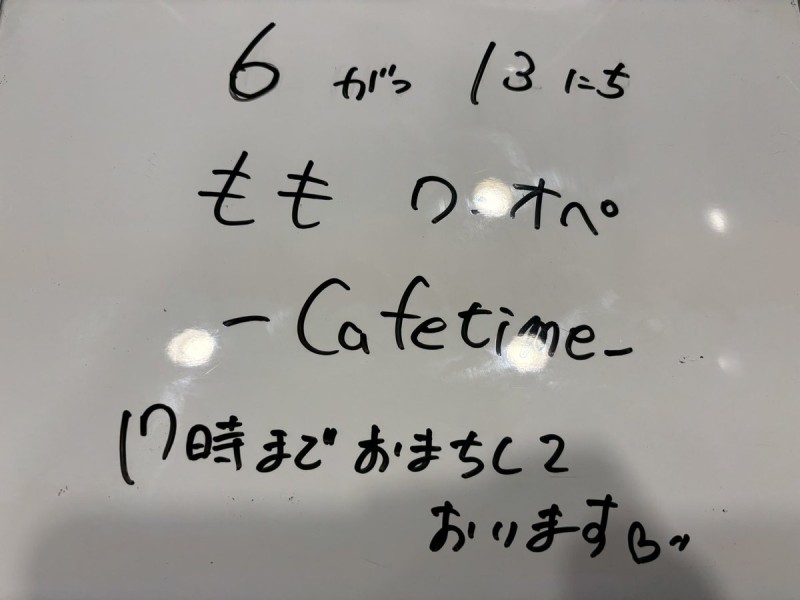 6 がつ 13 にち
もも ワンオペ
-Cafetime-
17時までおまちして
おります♡”